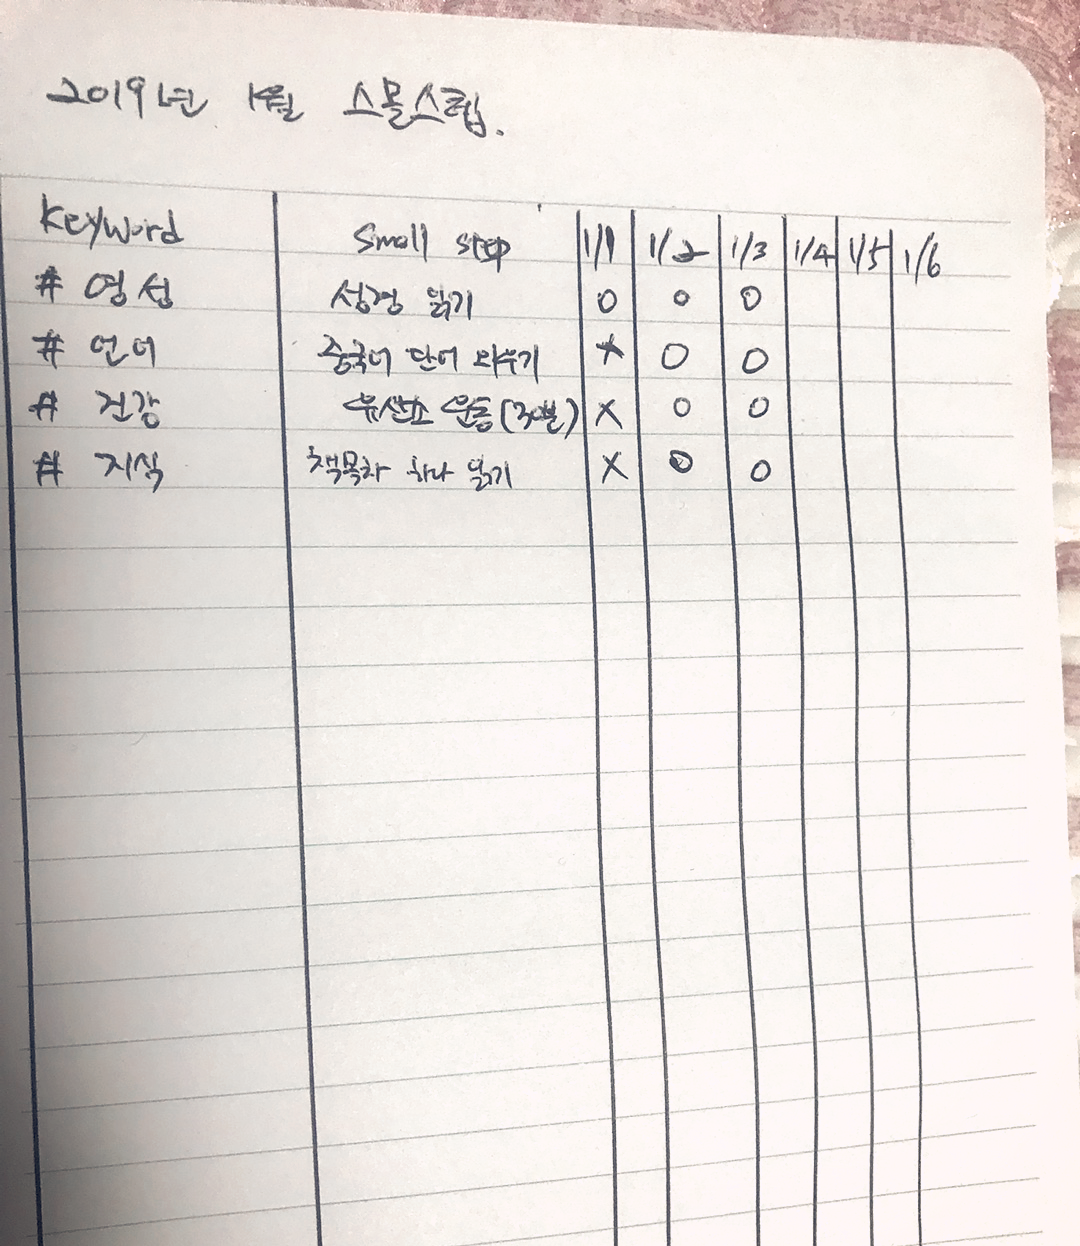 2019년 1월 스몰스텝.
Keyword Small step 1/1 1/2 1/3 1/4 1/5 1/6
# 영성 성경 읽기 O O O
# 언어 중국어 단어 외우기 X O O
# 건강 유산소 운동(30분) X O O
# 지식 책목차 하나 읽기 X O O